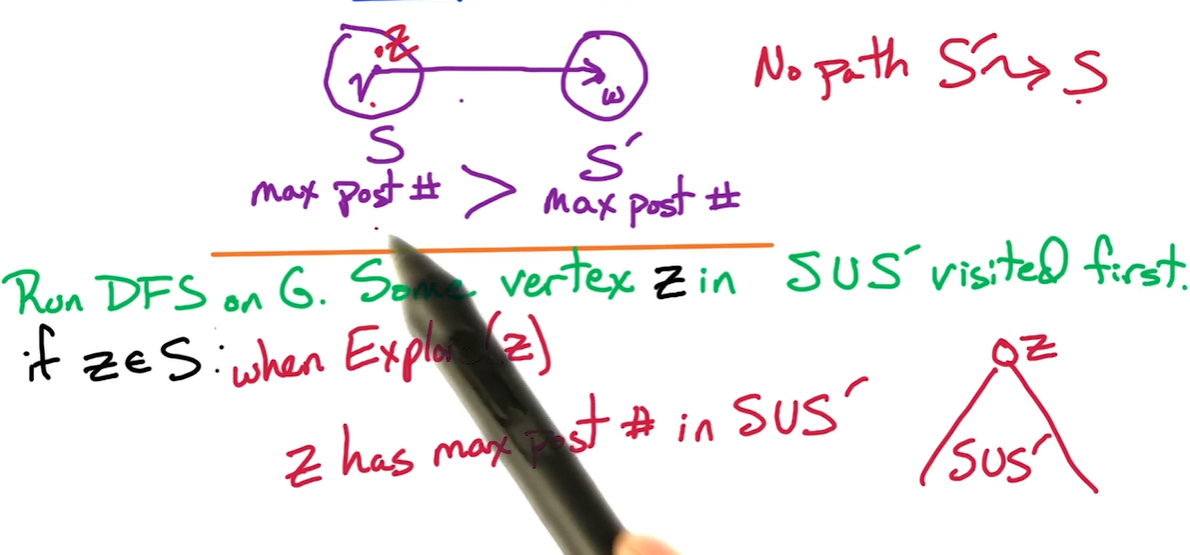 z
v
w
No path S' ⇝ S
S
S'
max post # > max post #
Run DFS on G. Some vertex z in S∪S' visited first.
if z∈S: when Explore(z)
z
z has max post # in S∪S'
S∪S'